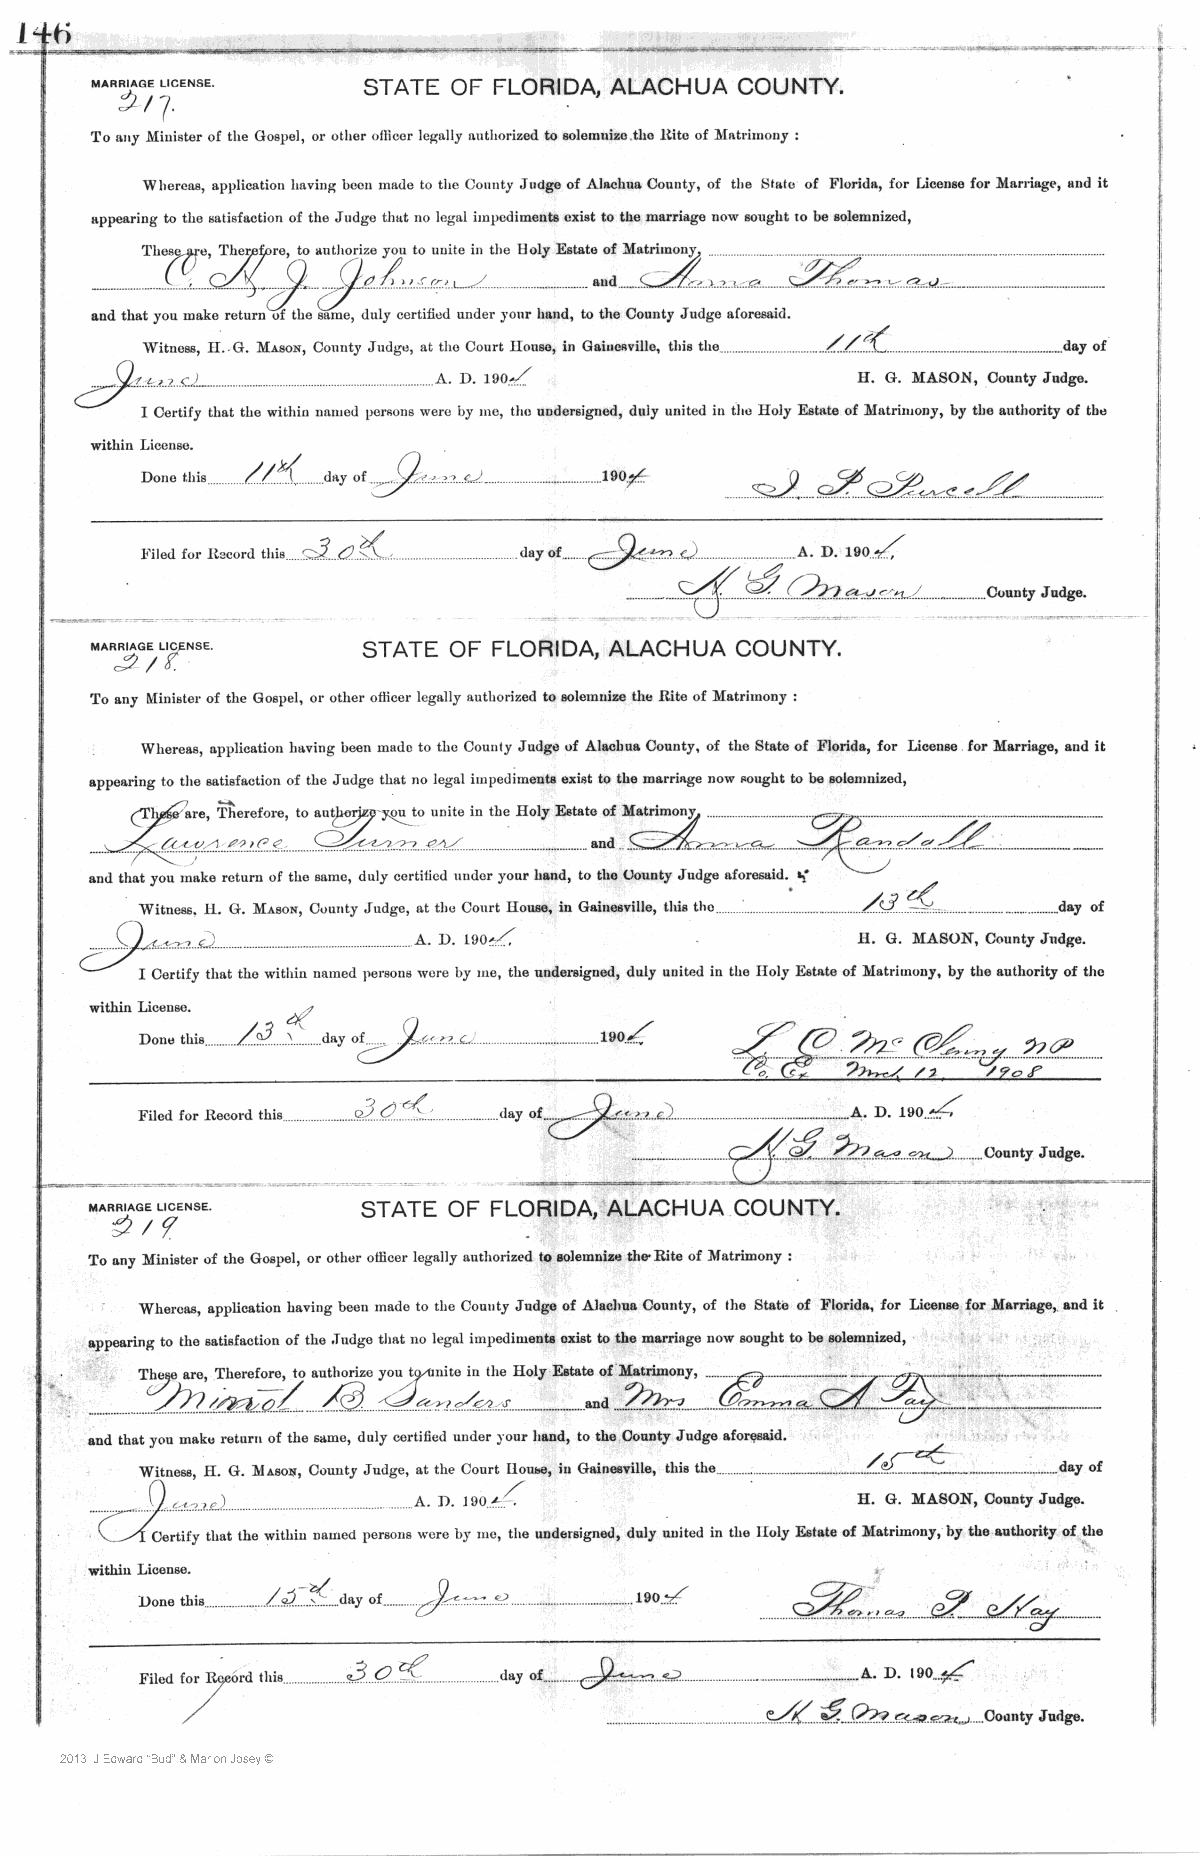 146
MARRIAGE LICENSE. STATE OF FLORIDA, ALACHUA COUNTY.
217.
To any Minister of the Gospel, or other officer legally authorized to solemnize the Rite of Matrimony :
Whereas, application having been made to the County Judge of Alachua County, of the State of Florida, for License for Marriage, and it
appearing to the satisfaction of the Judge that no legal impediments exist to the marriage now sought to be solemnized,
These are, Therefore, to authorize you to unite in the Holy Estate of Matrimony,
C. H. J. Johnson and Anna Thomas
and that you make return of the same, duly certified under your hand, to the County Judge aforesaid.
Witness, H. G. MASON, County Judge, at the Court House, in Gainesville, this the 11th day of
June A. D. 1904 H. G. MASON, County Judge.
I Certify that the within named persons were by me, the undersigned, duly united in the Holy Estate of Matrimony, by the authority of the
within License.
Done this 11th day of June 1904 P. Purcell
Filed for Record this 30th day of June A. D. 1904.
H. G. Mason County Judge.
MARRIAGE LICENSE. STATE OF FLORIDA, ALACHUA COUNTY.
218.
To any Minister of the Gospel, or other officer legally authorized to solemnize the Rite of Matrimony :
Whereas, application having been made to the County Judge of Alachua County, of the State of Florida, for License for Marriage, and it
appearing to the satisfaction of the Judge that no legal impediments exist to the marriage now sought to be solemnized,
These are, Therefore, to authorize you to unite in the Holy Estate of Matrimony,
Lawrence Turner and Anna Randall
and that you make return of the same, duly certified under your hand, to the County Judge aforesaid.
Witness, H. G. MASON, County Judge, at the Court House, in Gainesville, this the 13th day of
June A. D. 1904. H. G. MASON, County Judge.
I Certify that the within named persons were by me, the undersigned, duly united in the Holy Estate of Matrimony, by the authority of the
within License.
Done this 13th day of June 1904. L. C. McClenny NP
Co. Ex Mrch 12 1908
Filed for Record this 30th day of June A. D. 1904.
H. G. Mason County Judge.
MARRIAGE LICENSE. STATE OF FLORIDA, ALACHUA COUNTY.
219
To any Minister of the Gospel, or other officer legally authorized to solemnize the Rite of Matrimony :
Whereas, application having been made to the County Judge of Alachua County, of the State of Florida, for License for Marriage, and it
appearing to the satisfaction of the Judge that no legal impediments exist to the marriage now sought to be solemnized,
These are, Therefore, to authorize you to unite in the Holy Estate of Matrimony,
B Sanders and Mrs Emma A Fay
and that you make return of the same, duly certified under your hand, to the County Judge aforesaid.
Witness, H. G. MASON, County Judge, at the Court House, in Gainesville, this the 15th day of
June A. D. 1904. H. G. MASON, County Judge.
I Certify that the within named persons were by me, the undersigned, duly united in the Holy Estate of Matrimony, by the authority of the
within License.
Done this 15th day of June 1904 Thomas P. Hay
Filed for Record this 30th day of June A. D. 1904
H G. Mason County Judge.
2013 J Edward "Bud" & Marion Josey ©